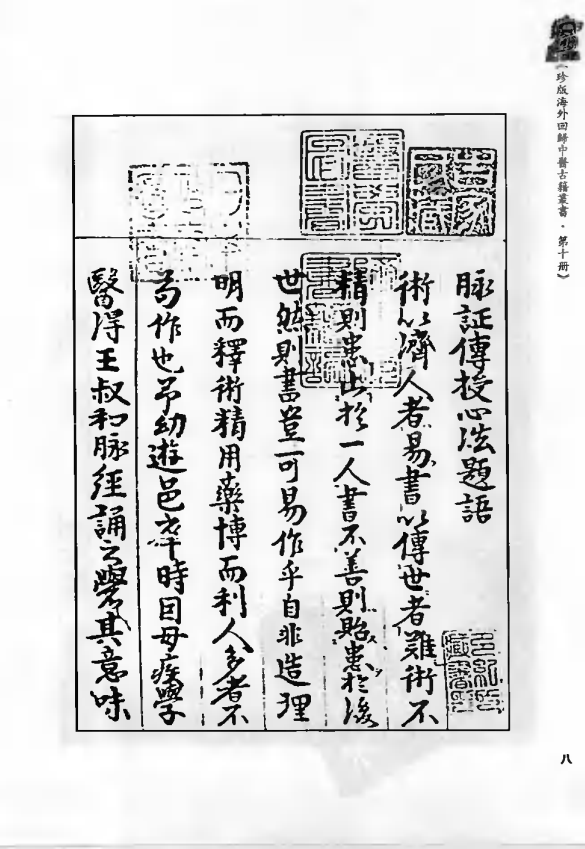 《珍版海外回歸中醫古籍叢書·第十冊》
脉証傳授心法題語
術以濟人者易書以傳世者難術不
精則患止於一人書不善則貽患於後
世然則書豈可易作乎自非造理
明而釋術精用藥博而利人多者不
苟作也予幼遊邑庠時因母疾學
醫得王叔和脉經誦之覺其意味
八